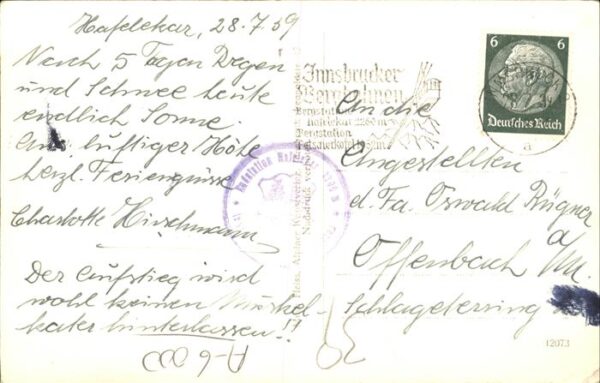 Hafelekar, 28.7.59
Nach 5 Tagen Regen
und Schnee heute
endlich Sonne.
Aus luftiger Höhe
herzl. Feriengrüsse
Charlotte Hirschmann
Der Aufstieg wird
wohl keinen Muskel-
kater hinterlassen!!
A-6000
Innsbrucker
Bergbahnen
6 6
Deutsches Reich
a
An die
Angestellten
d. Fa. Oswald Rügner
Offenbach a/M.
Schlageterring
12073